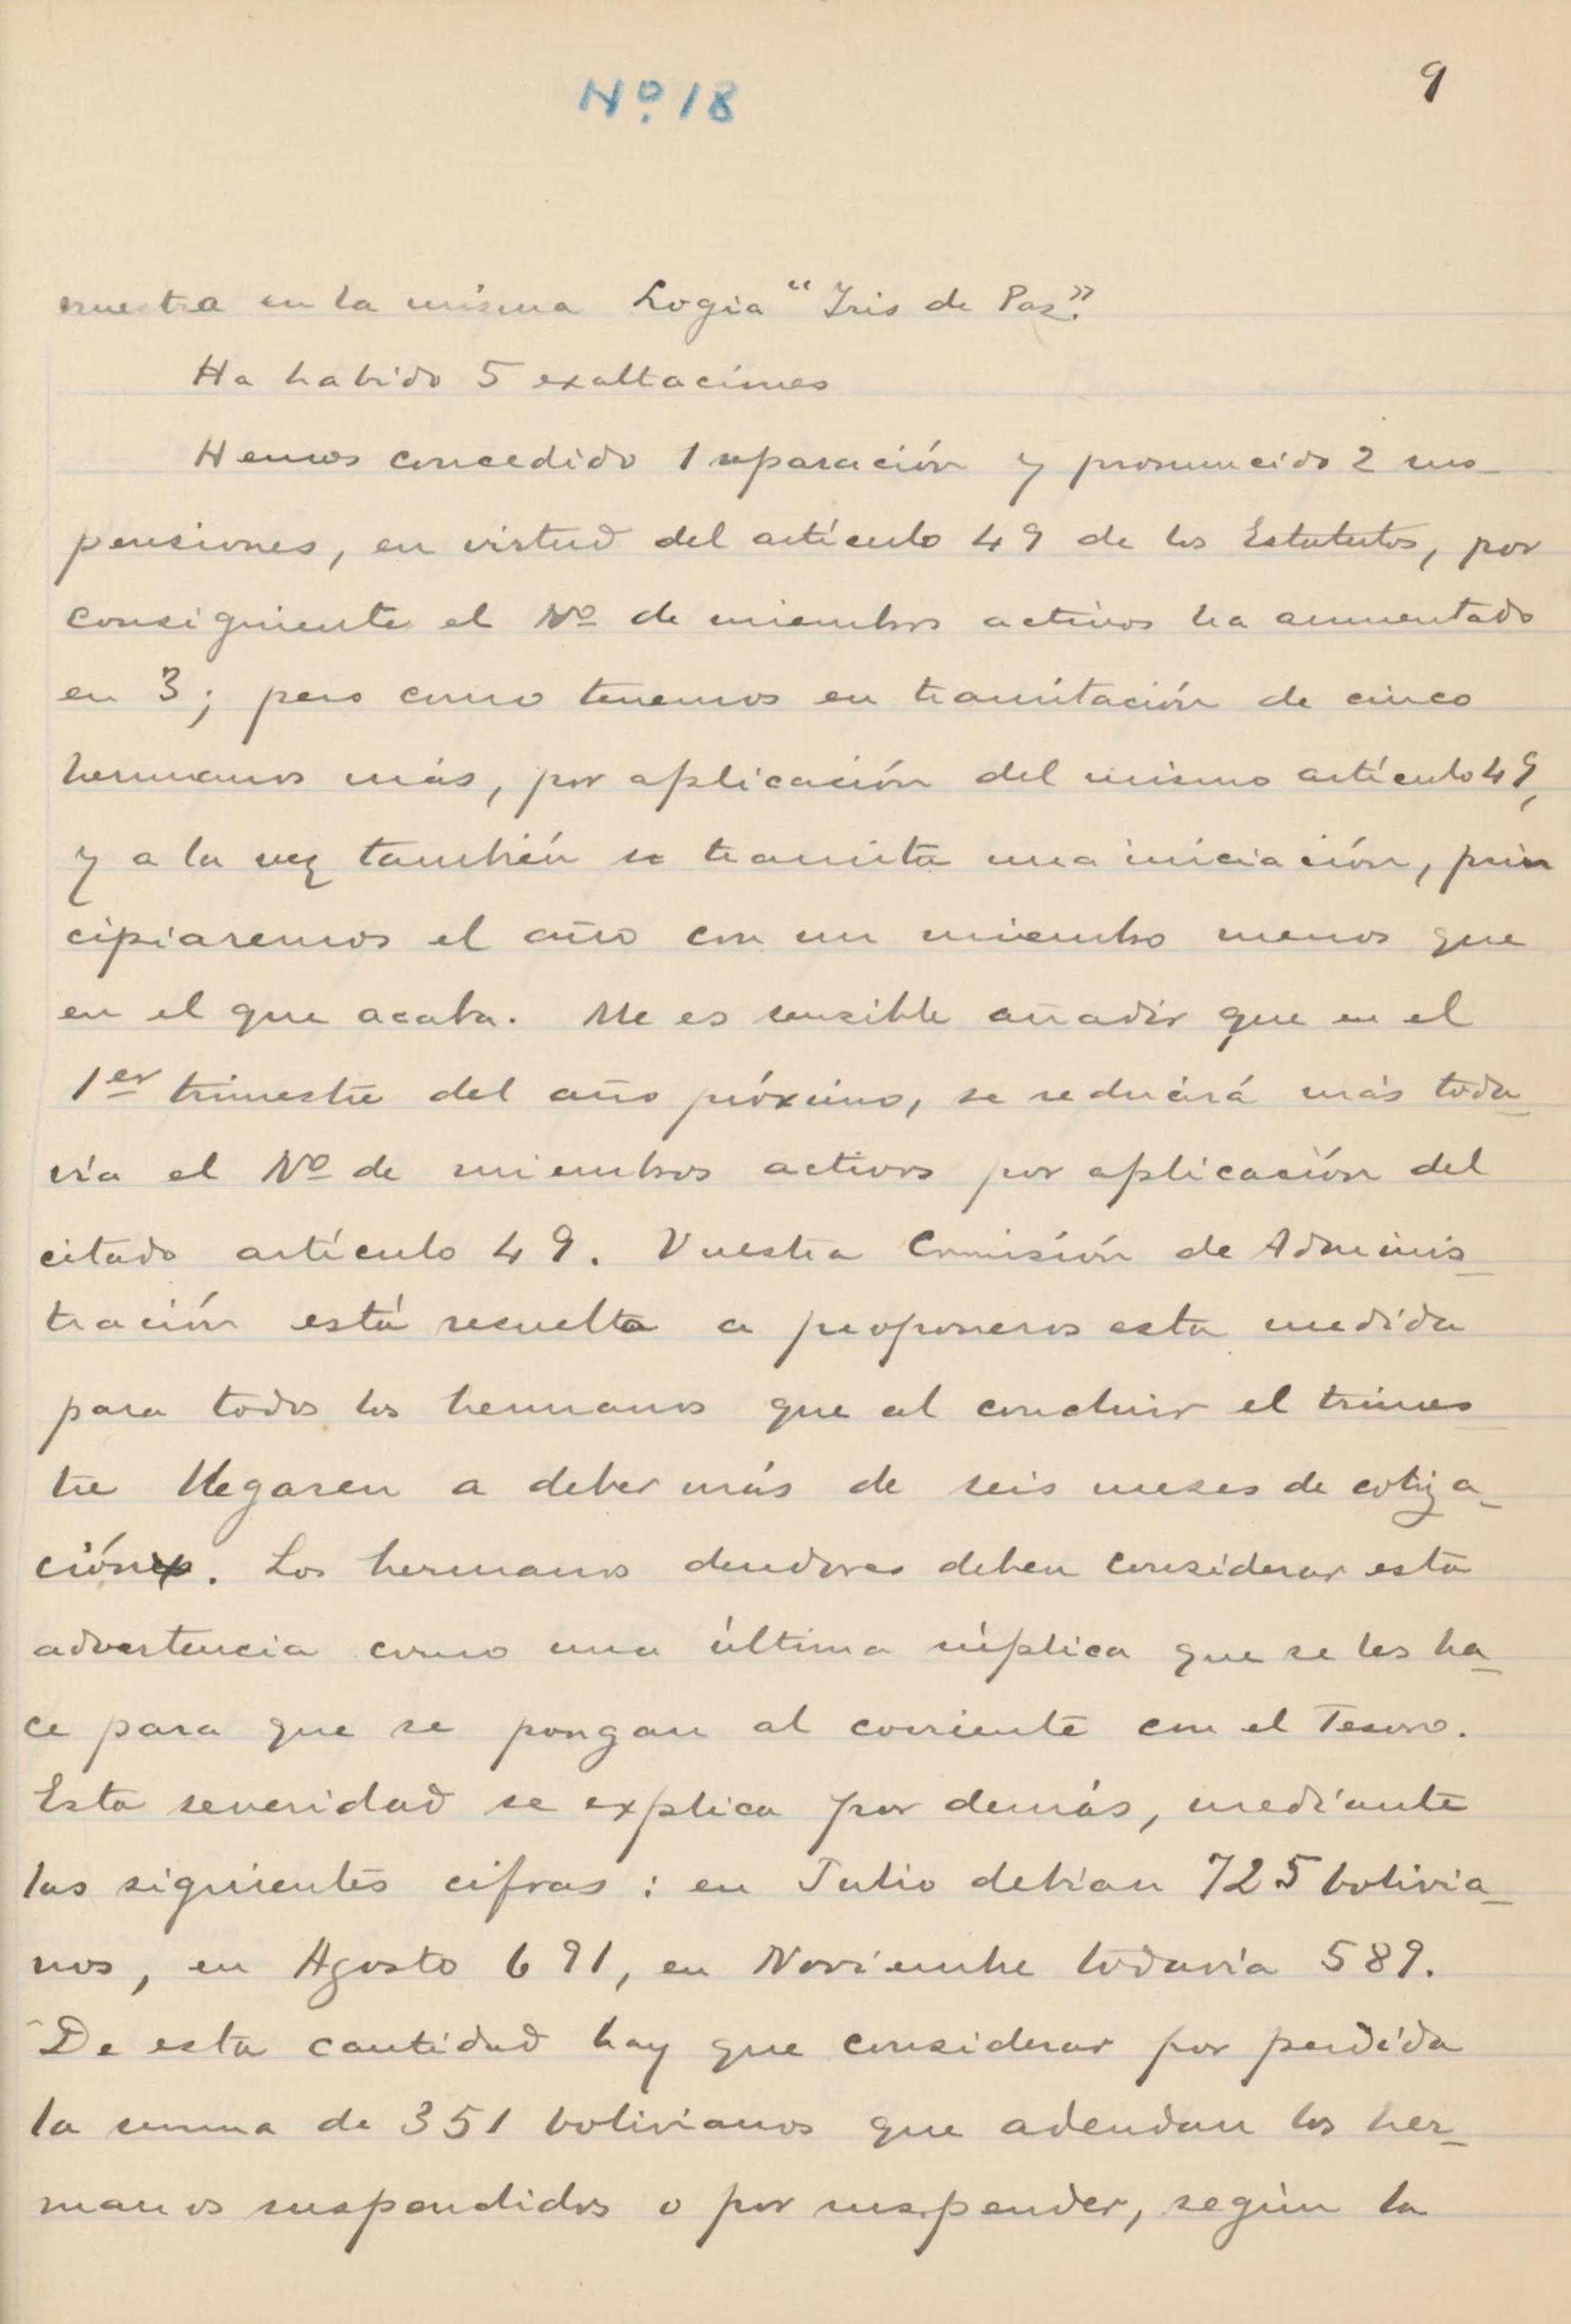 Nº 18
9
nuestra en la misma Logia "Iris de Paz".
Ha habido 5 exaltaciones
Hemos concedido 1 separación y pronunciado 2 sus-
pensiones, en virtud del artículo 49 de los Estatutos, por
consiguiente el Nº de miembros activos ha aumentado
en 3; pero como tenemos en tramitación de cinco
hermanos más, por aplicación del mismo artículo 49,
y a la vez también se tramita una iniciación, prin
cipiaremos el año con un miembro menos que
en el que acaba. Me es sensible añadir que en el
1er trimestre del año próximo, se reducirá más toda-
vía el Nº de miembros activos por aplicación del
citado artículo 49. Vuestra Comisión de Adminis-
tración está resuelta a proponeros esta medida
para todos los hermanos que al concluir el trimes-
tre llegaren a deber más de seis meses de cotiza-
ción. Los hermanos deudores deben considerar esta
advertencia como una última súplica que se les ha-
ce para que se pongan al corriente con el Tesoro.
Esta severidad se explica por demás, mediante
las siguientes cifras: en Julio debían 725 bolivia-
nos, en Agosto 691, en Noviembre todavía 589.
De esta cantidad hay que considerar por perdida
la suma de 351 bolivianos que adeudan los her-
manos suspendidos o por suspender, según la